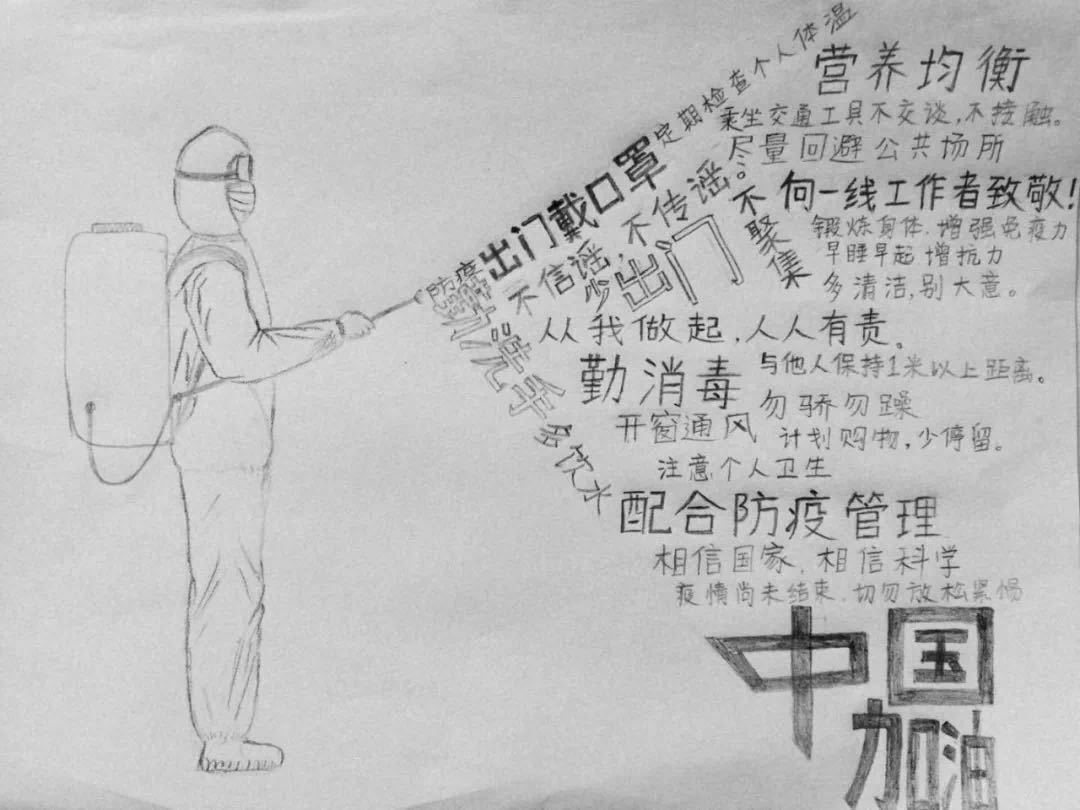 定期检查个人体温
营养均衡
乘坐交通工具不交谈,不接触。
尽量回避公共场所
防疫
出门戴口罩
不信谣,不传谣。
不聚集
向一线工作者致敬!
锻炼身体,增强免疫力
早睡早起,增抗力
多清洁,别大意。
少出门
勤洗手
多饮水
从我做起,人人有责。
勤消毒
与他人保持1米以上距离。
勿骄勿躁
开窗通风
计划购物,少停留。
注意个人卫生
配合防疫管理
相信国家,相信科学
疫情尚未结束,切勿放松紧惕
中国
加油